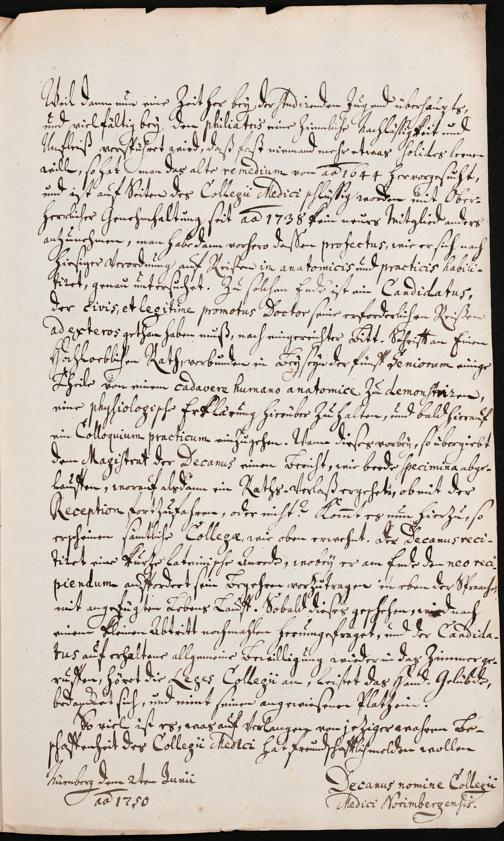 Weil dann nun eine Zeit her bey der studirenden Jugend überhaupts,
und vielfältig bey den philiatris eine ziemliche Nachläßigkeit und
Unfleiß verspühret wird, daß fast niemand mehr etwas solides lernen
will, so hat man das alte remedium von aō 1644 hervorgesucht,
und ist auf Seiten des Collegii Medici schlüssig worden mit Ober-
herrlicher Genehmhaltung seit aō 1738 kein neues Mitglied anders
anzunehmen, man habe dann vorhero dessen profectus, wie er sich nach
hiesiger Verordnung auf Reisen in anatomicis und practicis habili-
tiret, genau untersuchet. Zu solchem Ende ist ein Candidatus,
der civis, et legitime promotus Doctor seine erforderlichen Reisen
ad exteros gethan haben muß, nach eingereichter Bitt-Schrifft an Einen
Hochloeblichen Rath, verbunden in Beyseyn der fünff Seniorum einige
Theile von einem cadavere humano anatomice zu demonstriren,
eine physiologische Erklärung hierüber zu halten, und bald hierauf
ein Colloquium practicum einzugehen. Wann dieses vorbey, so übergiebt
dem Magistrat der Decanus einen Bericht, wie beede specimina abge-
lauffen, worauf alsdann ein Raths-Verlaß ergehet, ob mit der
Reception fortzufahren, oder nicht. Kommt es nun hierzu, so
erscheinen samtliche Collegæ, wie oben erwehnt. Der Decanus reci-
tiret eine kurze lateinische Rede, wobey er am Ende den neo reci-
piendum auffordert sein Begehren vorzutragen in eben der Sprache
mit angefügten Lebens Lauff. Sobald dieses geschehen, wird nach
einem kleinen Abtritt nochmahlen herumgefraget, und der Candida-
tus auf erhaltene allgemeine Bewilligung wieder in das Zimmer ge-
ruffen, höret die Leges Collegii an, leistet das Hand Gelübde,
bedancket sich, und nimt seinen angewiesenen Platz ein.
So viel ist es, was auf Verlangen von jeziger wahren Be-
schaffenheit des Collegii Medici hat freundschafftlich melden wollen
Nürnberg dem 2ten Junii
aō 1750
Decanus nomine Collegii
Medici Norimbergensis.